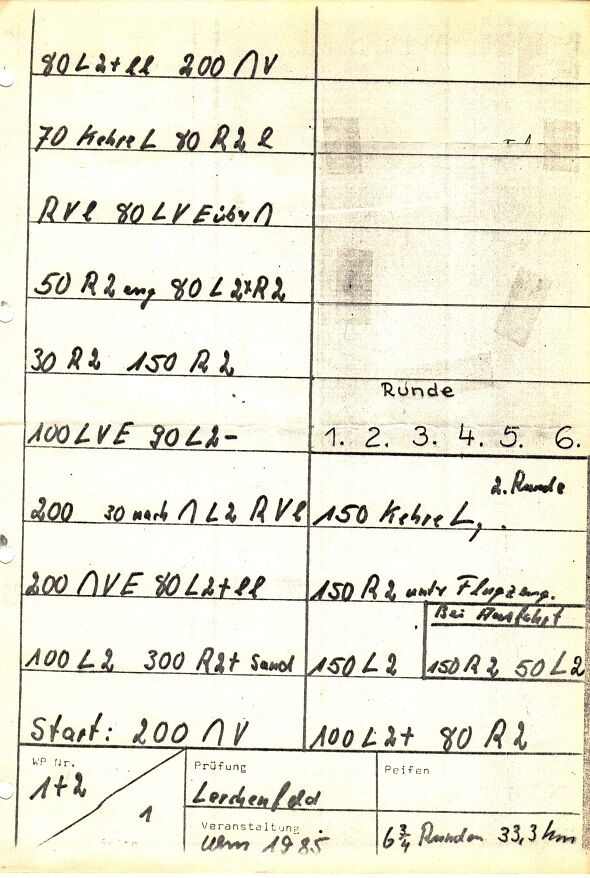 80 L2+ll 200 ∩ V
70 Kehre L 80 R2 l
RVl 80 LVE über ∩
50 R2 eng 80 L2×R2
30 R2 150 R2
Runde
100 LVE 90 L2-
1. 2. 3. 4. 5. 6.
2. Runde
200 30 nach ∩ L2 RVl
150 Kehre L,
200 ∩VE 80 L2+ll
150 R2 unter Flugzeug.
Bei Ausfahrt
100 L2 300 R2+ Sand
150 L2
150 R2 50 L2
Start: 200 ∩ V
100 L2+ 80 R2
WP Nr.
1+2
1
Seite
Prüfung
Lerchenfeld
Reifen
Veranstaltung
Ulm 1985
6 3/4 Runden 33,3 km